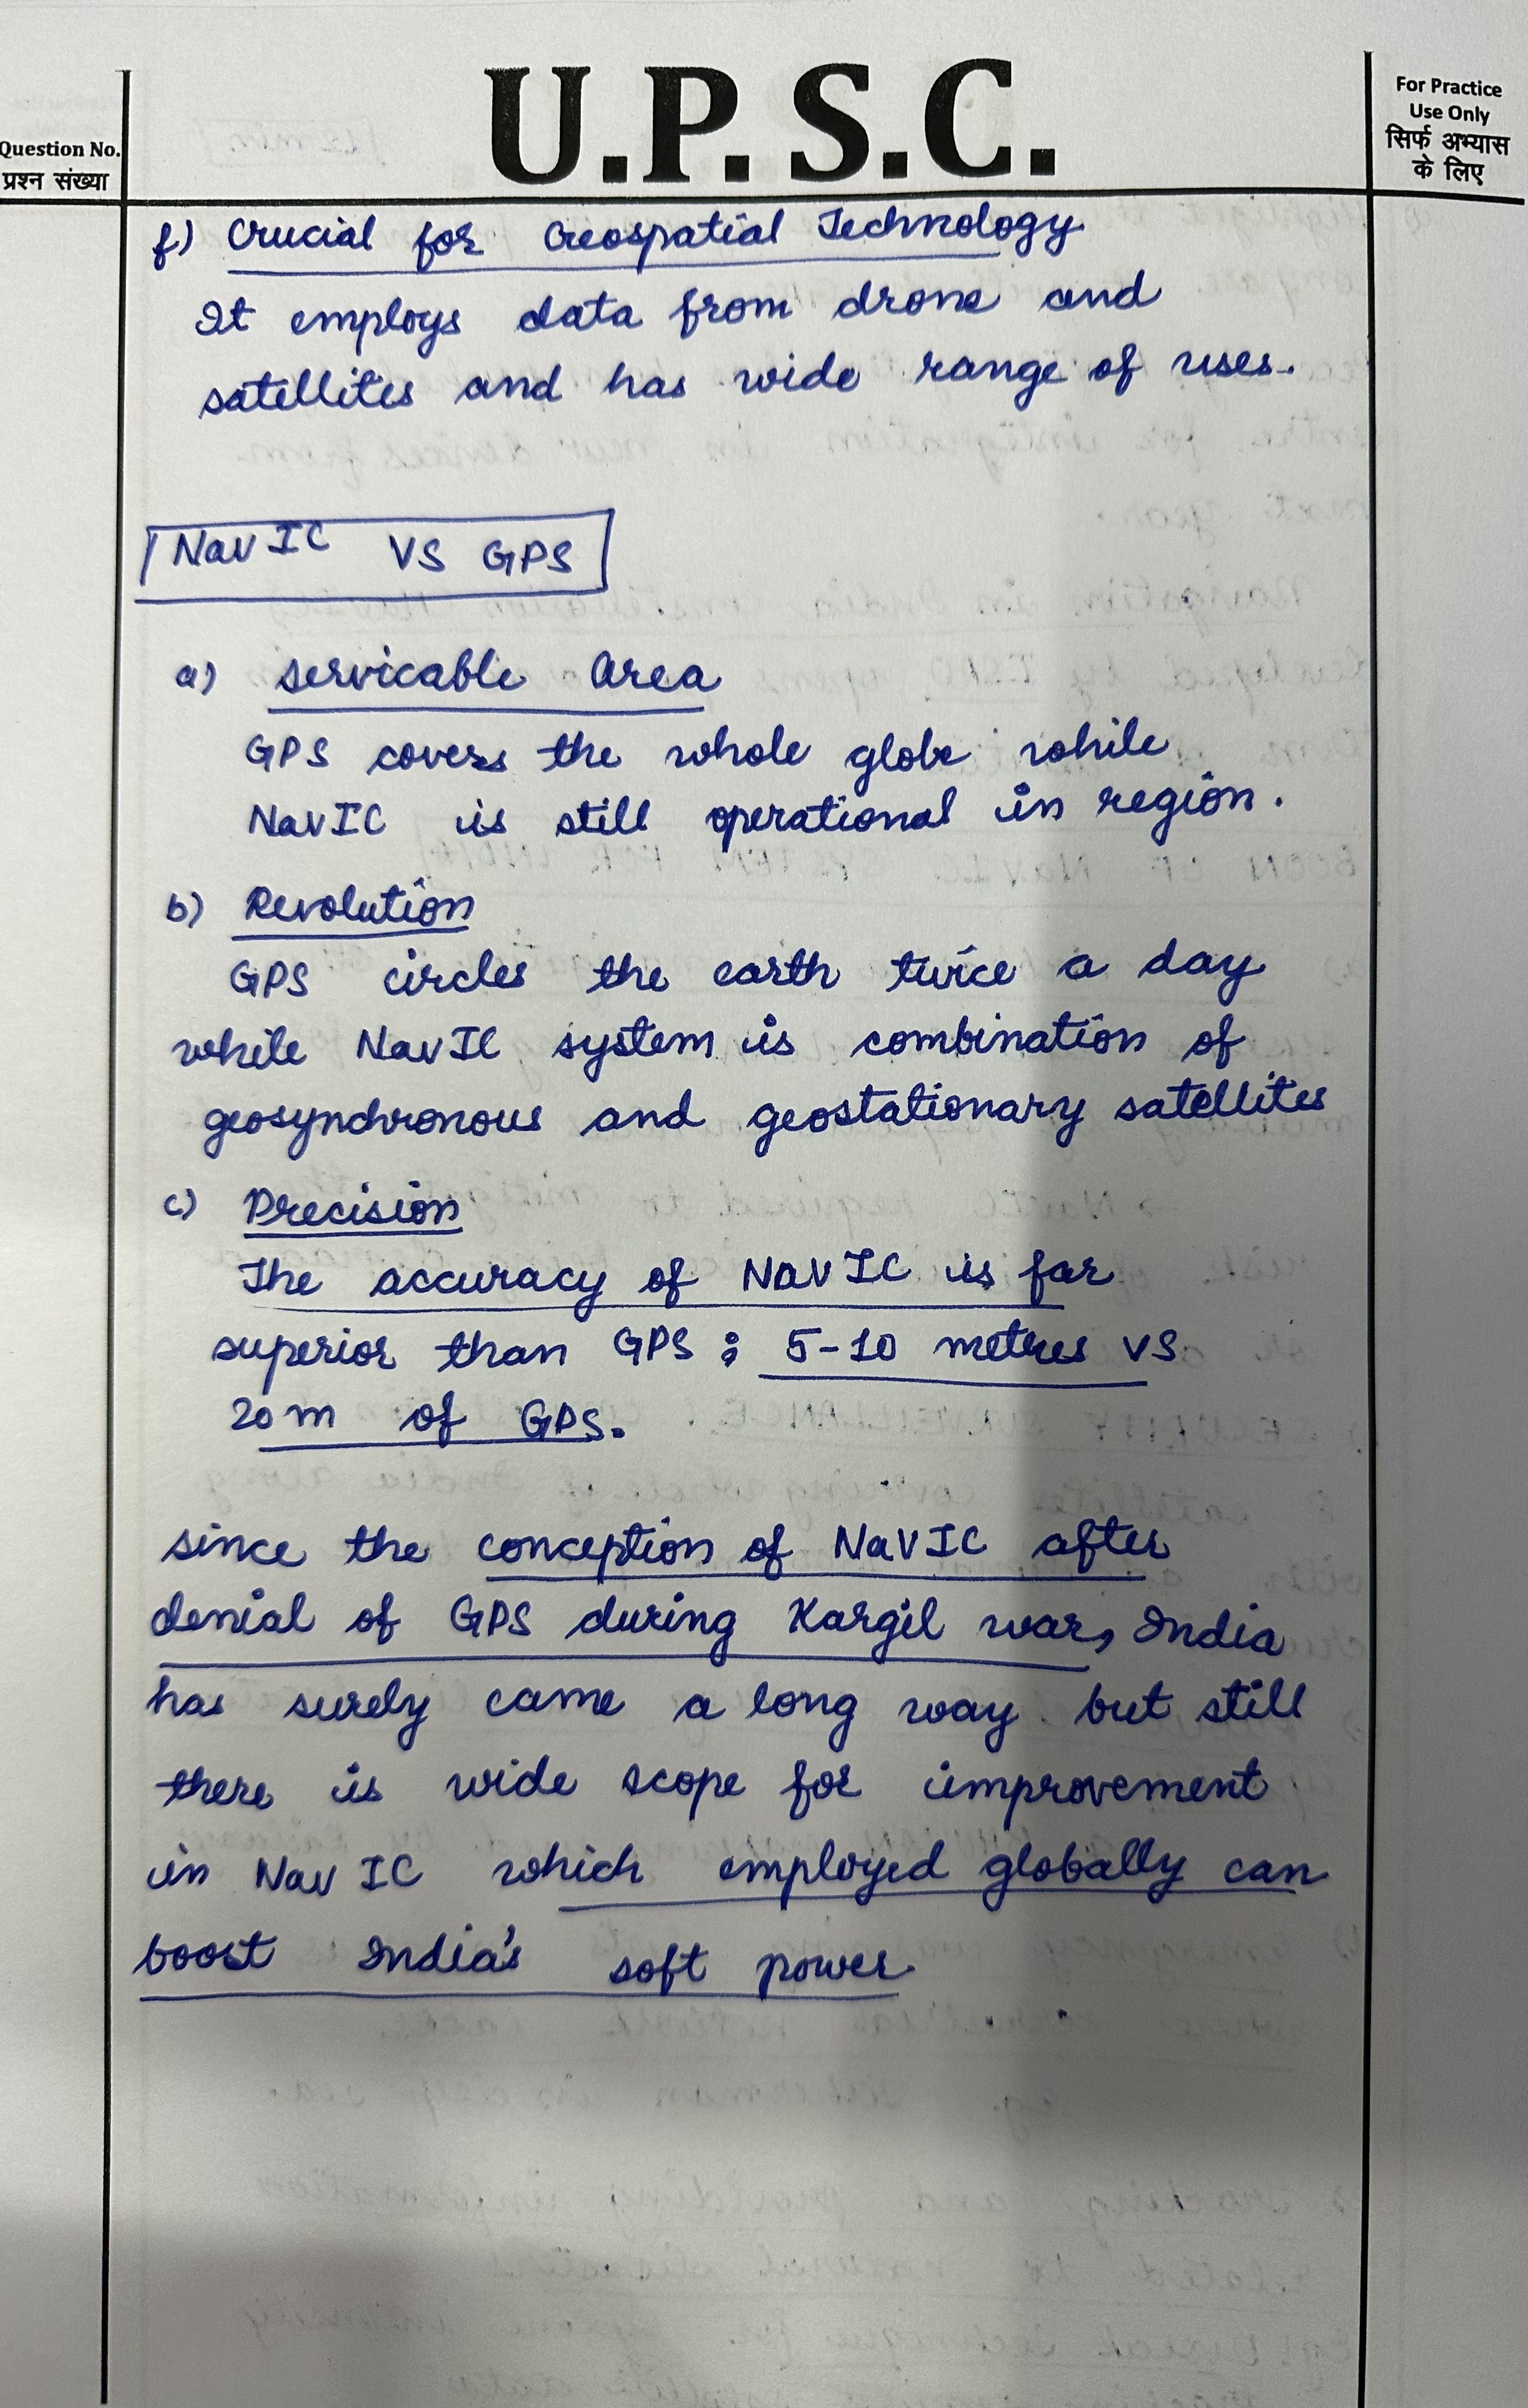 U.P.S.C.
Question No.
प्रश्न संख्या
For Practice
Use Only
सिर्फ अभ्यास
के लिए
f) Crucial for Geospatial Technology
It employs data from drone and
satellites and has wide range of uses.
NavIC VS GPS
a) servicable Area
GPS covers the whole globe while
NavIC is still operational in region.
b) Revolution
GPS circles the earth twice a day
while NavIC system is combination of
geosynchronous and geostationary satellites
c) Precision
The accuracy of NavIC is far
superior than GPS : 5-10 metres VS
20m of GPS.
since the conception of NavIC after
denial of GPS during Kargil war, India
has surely came a long way but still
there is wide scope for improvement
in NavIC which employed globally can
boost India's soft power